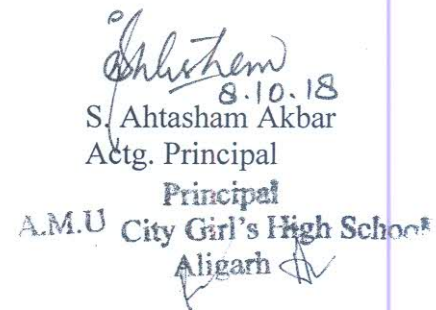 8.10.18
S. Ahtasham Akbar
Actg. Principal
Principal
A.M.U City Girl's High School
Aligarh